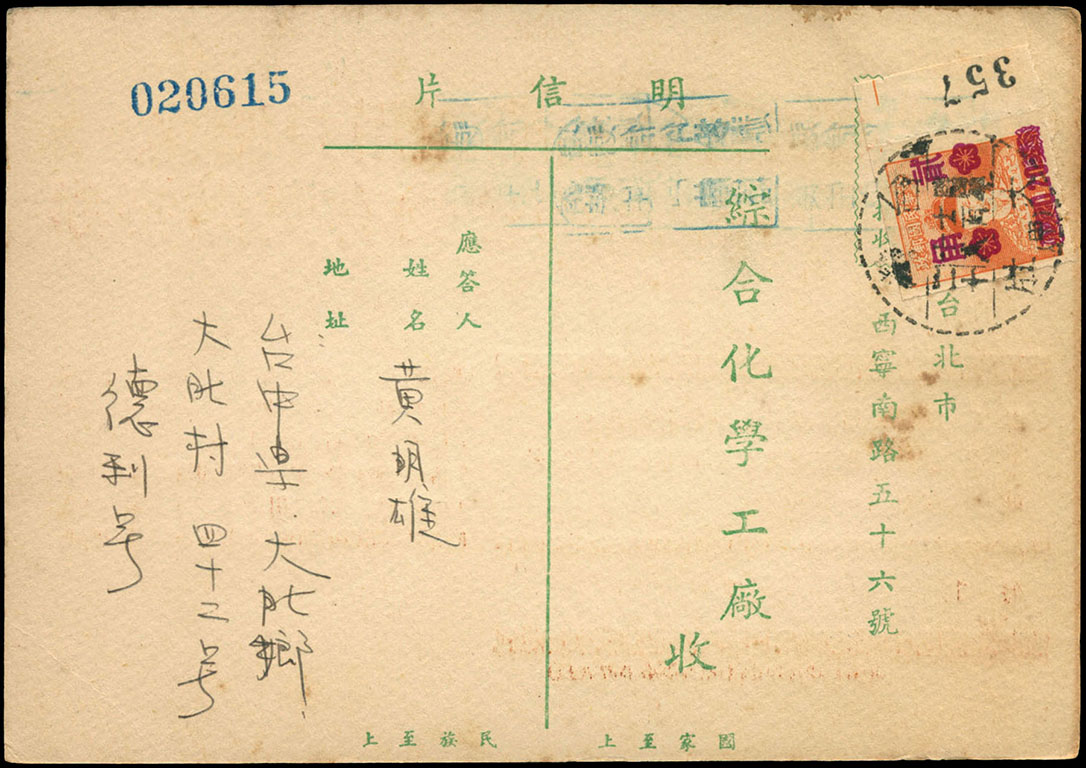 020615
明信片
357
台北市
西寧南路五十六號
綜合化學工廠
收
應答人
姓名
黃明雄
地址
台中県大肚鄉
大肚村四十二号
德利号
國家至上
民族至上
貳角